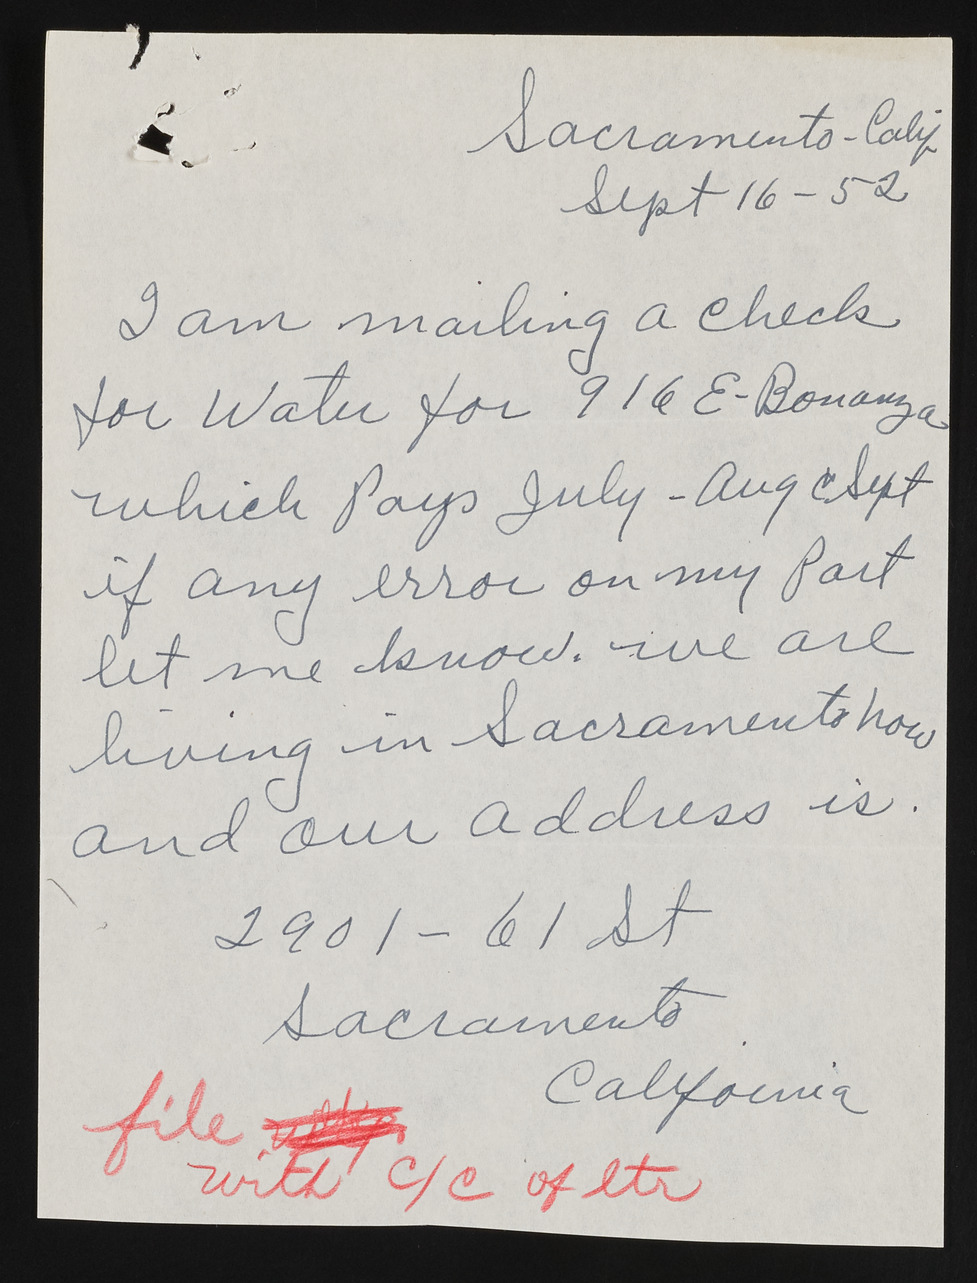 Sacramento - Calif
Sept 16 - 52
I am mailing a check
for Water for 916 E - Bonanza
which Pays July - Aug & Sept
if any error on my Part
let me know. we are
living in Sacramento now
and our address is.
2901 - 61 St
Sacramento
California
file
with c/c of ltr